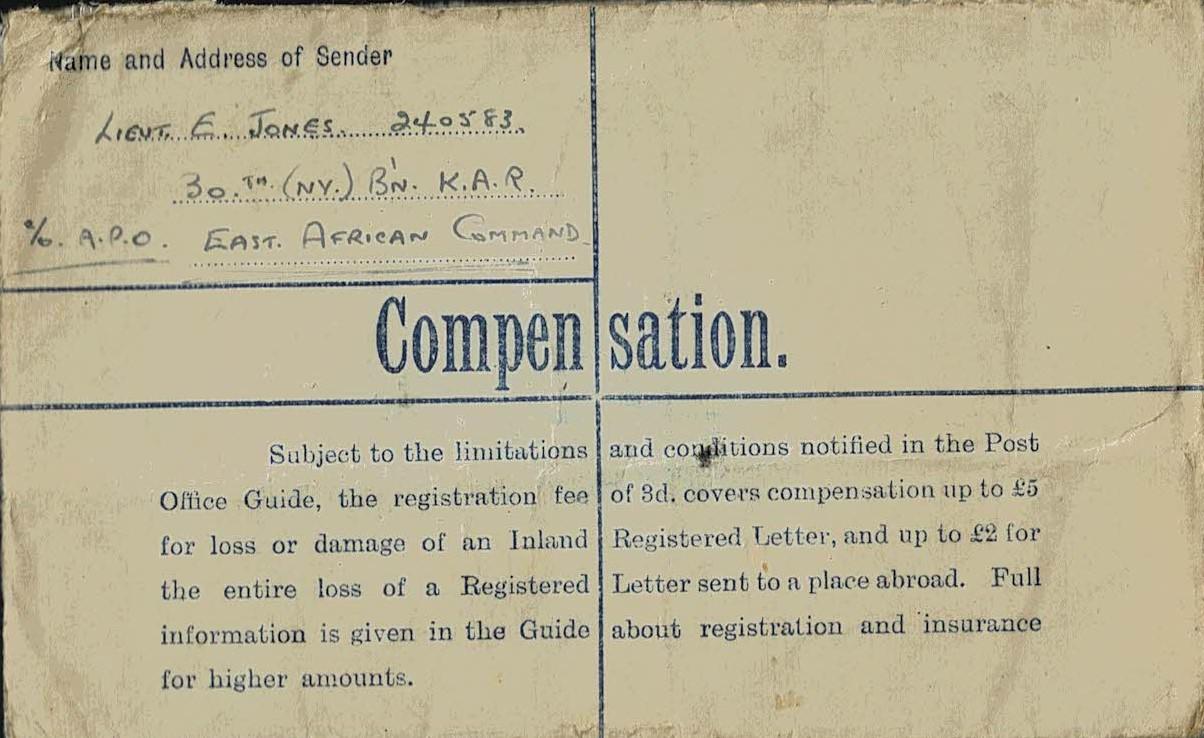 Name and Address of Sender
LIEUT. E. JONES. 240583.
30.TH. (NY.) B'N. K.A.R.
c/o. A.P.O. EAST. AFRICAN COMMAND.
Compensation.
Subject to the limitations and conditions notified in the Post
Office Guide, the registration fee of 3d. covers compensation up to £5
for loss or damage of an Inland Registered Letter, and up to £2 for
the entire loss of a Registered Letter sent to a place abroad. Full
information is given in the Guide about registration and insurance
for higher amounts.